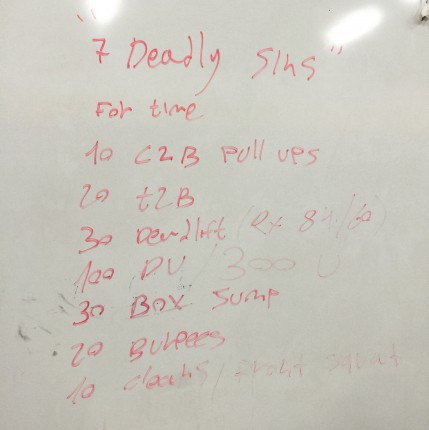 "7 Deadly Sins"
For time
10 C2B Pull ups
20 t2B
30 Deadlift (Rx 84/60)
100 DU / 300 U
30 Box Jump
20 Burpees
10 cleans / front squat